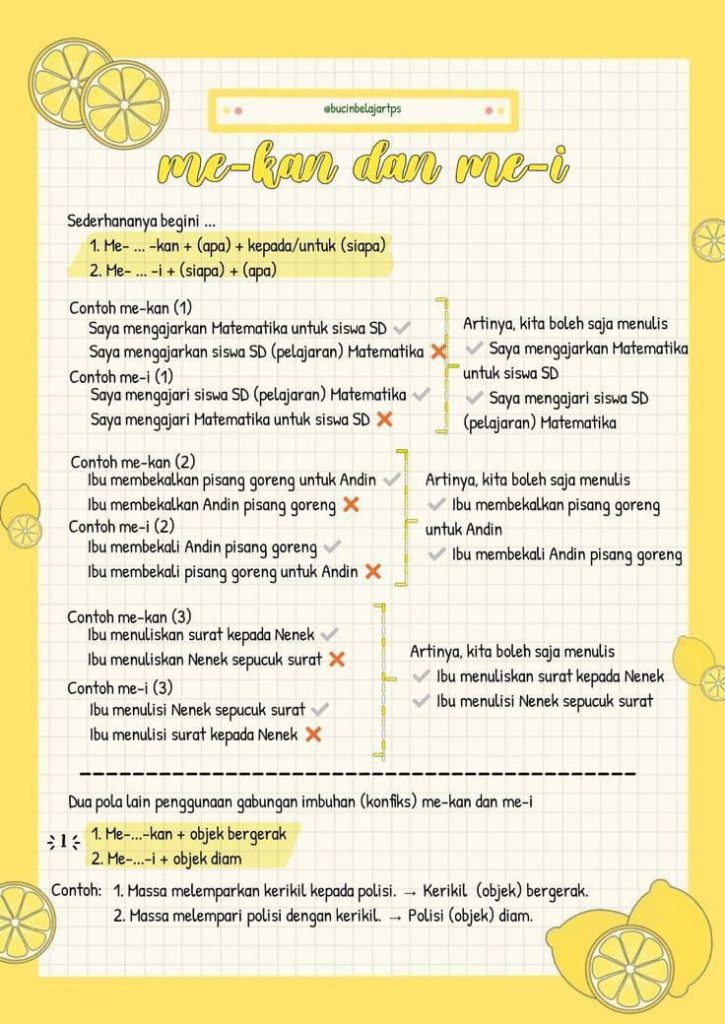 @bucinbelajartps
me-kan dan me-i
Sederhananya begini ...
1. Me- ... -kan + (apa) + kepada/untuk (siapa)
2. Me- ... -i + (siapa) + (apa)
Contoh me-kan (1)
Saya mengajarkan Matematika untuk siswa SD ✓
Saya mengajarkan siswa SD (pelajaran) Matematika ❌
Contoh me-i (1)
Saya mengajari siswa SD (pelajaran) Matematika ✓
Saya mengajari Matematika untuk siswa SD ❌
Artinya, kita boleh saja menulis
✓ Saya mengajarkan Matematika
untuk siswa SD
✓ Saya mengajari siswa SD
(pelajaran) Matematika
Contoh me-kan (2)
Ibu membekalkan pisang goreng untuk Andin ✓
Ibu membekalkan Andin pisang goreng ❌
Contoh me-i (2)
Ibu membekali Andin pisang goreng ✓
Ibu membekali pisang goreng untuk Andin ❌
Artinya, kita boleh saja menulis
✓ Ibu membekalkan pisang goreng
untuk Andin
✓ Ibu membekali Andin pisang goreng
Contoh me-kan (3)
Ibu menuliskan surat kepada Nenek ✓
Ibu menuliskan Nenek sepucuk surat ❌
Contoh me-i (3)
Ibu menulisi Nenek sepucuk surat ✓
Ibu menulisi surat kepada Nenek ❌
Artinya, kita boleh saja menulis
✓ Ibu menuliskan surat kepada Nenek
✓ Ibu menulisi Nenek sepucuk surat
Dua pola lain penggunaan gabungan imbuhan (konfiks) me-kan dan me-i
1
1. Me-...-kan + objek bergerak
2. Me-...-i + objek diam
Contoh: 1. Massa melemparkan kerikil kepada polisi. → Kerikil (objek) bergerak.
2. Massa melempari polisi dengan kerikil. → Polisi (objek) diam.